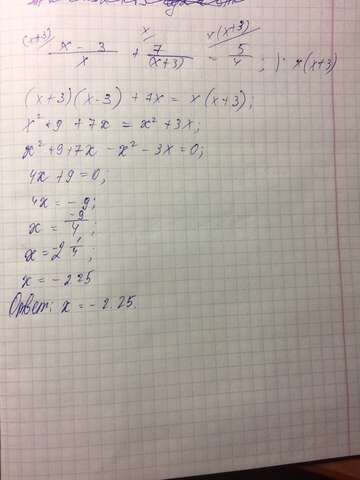 (x+3)/ x/ x(x+3)/
x - 3 / x + 7 / (x+3) = 5 / 4 ; | · x(x+3)
(x+3)(x-3) + 7x = x(x+3);
x² + 9 + 7x = x² + 3x;
x² + 9 + 7x - x² - 3x = 0;
4x + 9 = 0;
4x = - 9;
x = -9 / 4;
x = -2 1/4;
x = - 2.25
Ответ: x = - 2.25.